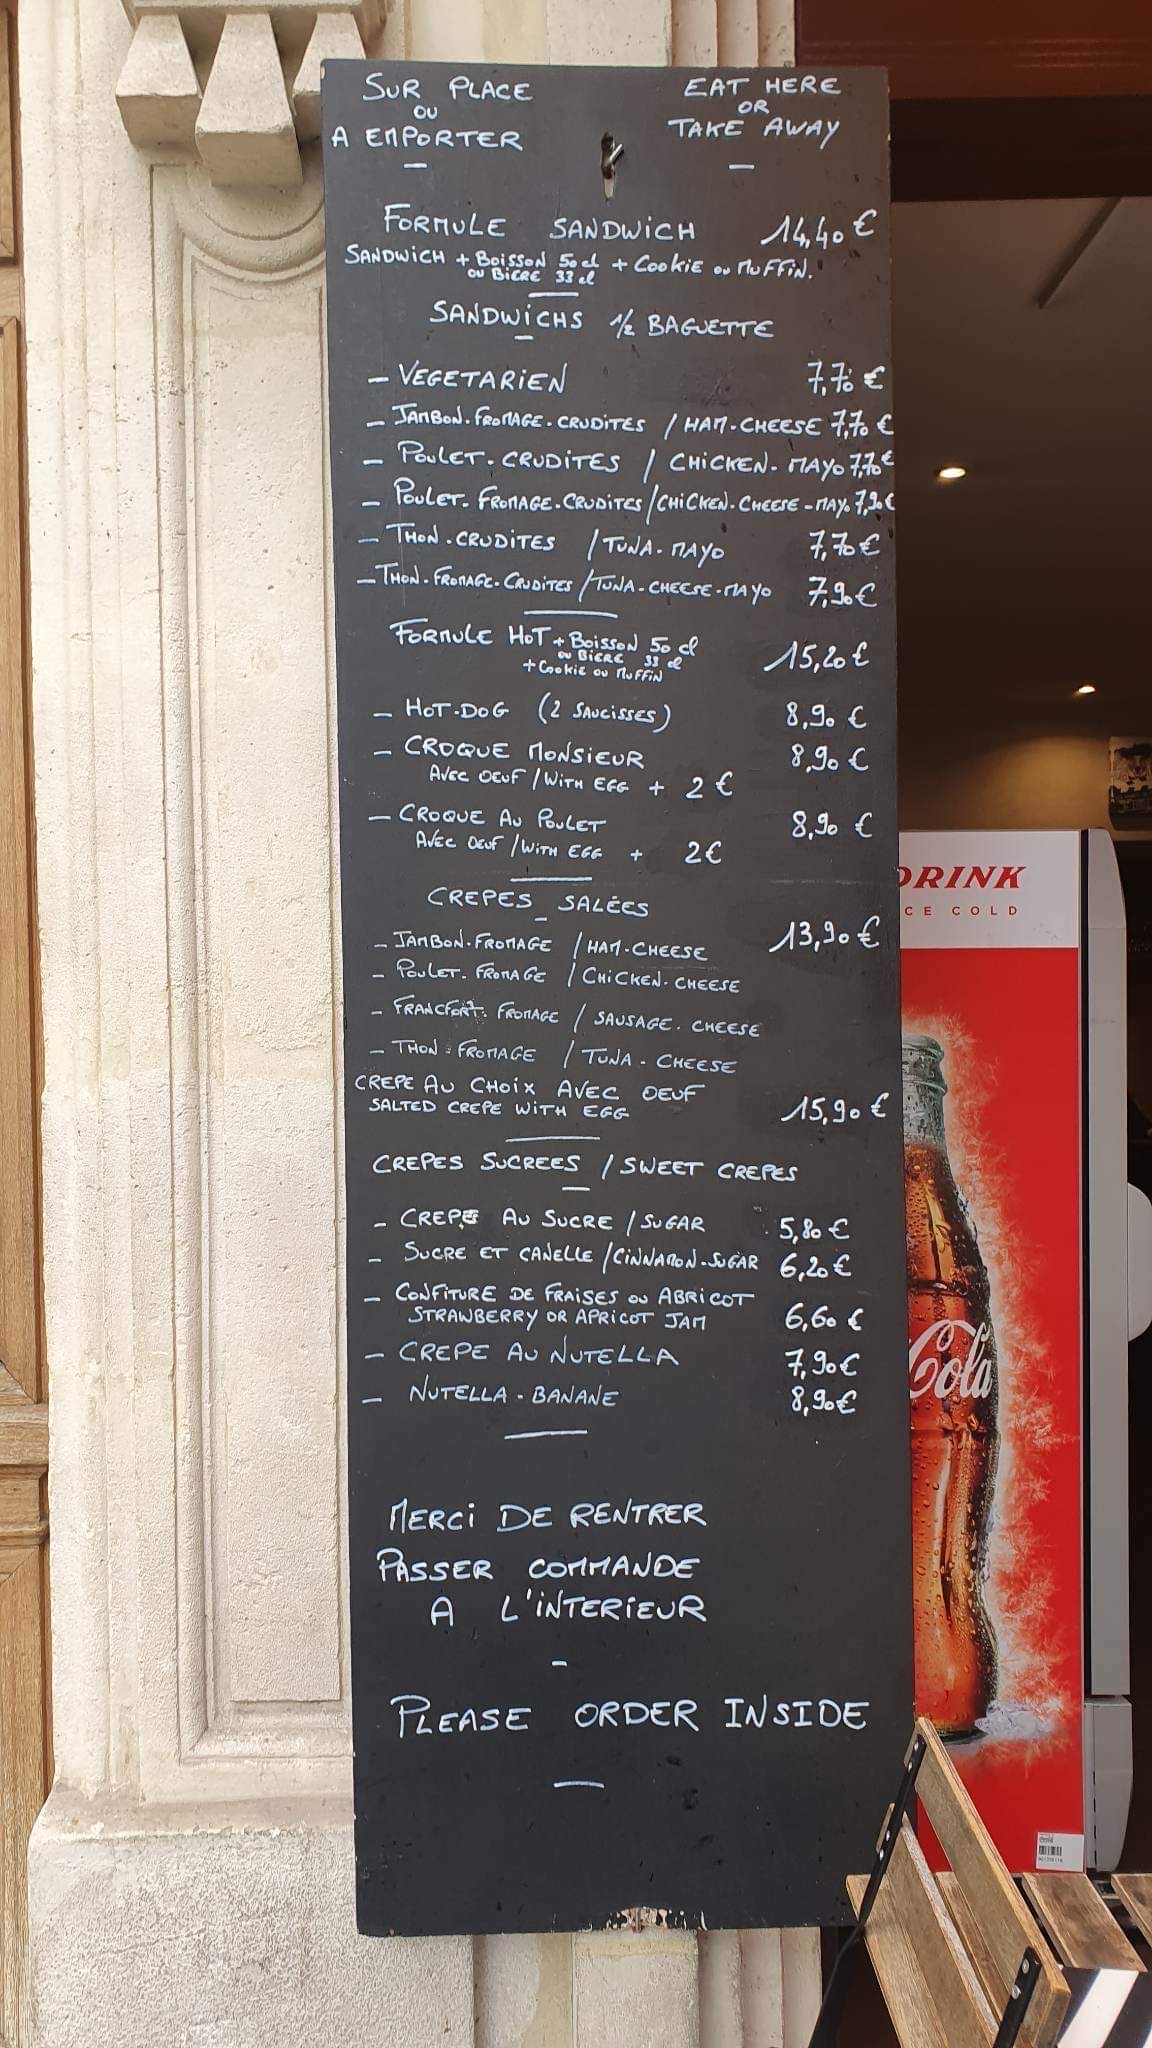 SUR PLACE
OU
A EMPORTER
EAT HERE
OR
TAKE AWAY
FORMULE SANDWICH 14,40 €
SANDWICH + BOISSON 50 cl + COOKIE OU MUFFIN.
OU BIERE 33 cl
SANDWICHS 1/2 BAGUETTE
- VEGETARIEN 7,70 €
- JAMBON.FROMAGE.CRUDITES / HAM-CHEESE 7,70 €
- POULET.CRUDITES / CHICKEN.MAYO 7,70 €
- POULET.FROMAGE.CRUDITES / CHICKEN.CHEESE-MAYO 7,90 €
- THON.CRUDITES / TUNA.MAYO 7,70 €
- THON.FROMAGE.CRUDITES / TUNA.CHEESE.MAYO 7,90 €
FORMULE HOT + BOISSON 50 cl 15,20 €
OU BIERE 33 cl
+ COOKIE OU MUFFIN
- HOT-DOG (2 SAUCISSES) 8,90 €
- CROQUE MONSIEUR 8,90 €
AVEC OEUF / WITH EGG + 2 €
- CROQUE AU POULET 8,90 €
AVEC OEUF / WITH EGG + 2 €
CREPES SALÉES
13,90 €
- JAMBON.FROMAGE / HAM-CHEESE
- POULET.FROMAGE / CHICKEN.CHEESE
- FRANCFORT.FROMAGE / SAUSAGE.CHEESE
- THON.FROMAGE / TUNA-CHEESE
CREPE AU CHOIX AVEC OEUF
SALTED CREPE WITH EGG 15,90 €
CREPES SUCREES / SWEET CREPES
- CREPE AU SUCRE / SUGAR 5,80 €
- SUCRE ET CANELLE / CINNAMON-SUGAR 6,20 €
- CONFITURE DE FRAISES OU ABRICOT
STRAWBERRY OR APRICOT JAM 6,60 €
- CREPE AU NUTELLA 7,90 €
- NUTELLA-BANANE 8,90 €
MERCI DE RENTRER
PASSER COMMANDE
A L'INTERIEUR
PLEASE ORDER INSIDE
DRINK
ICE COLD
Cola